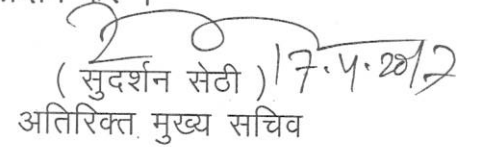 ( सुदर्शन सेठी ) 17.4.2012
अतिरिक्त मुख्य सचिव